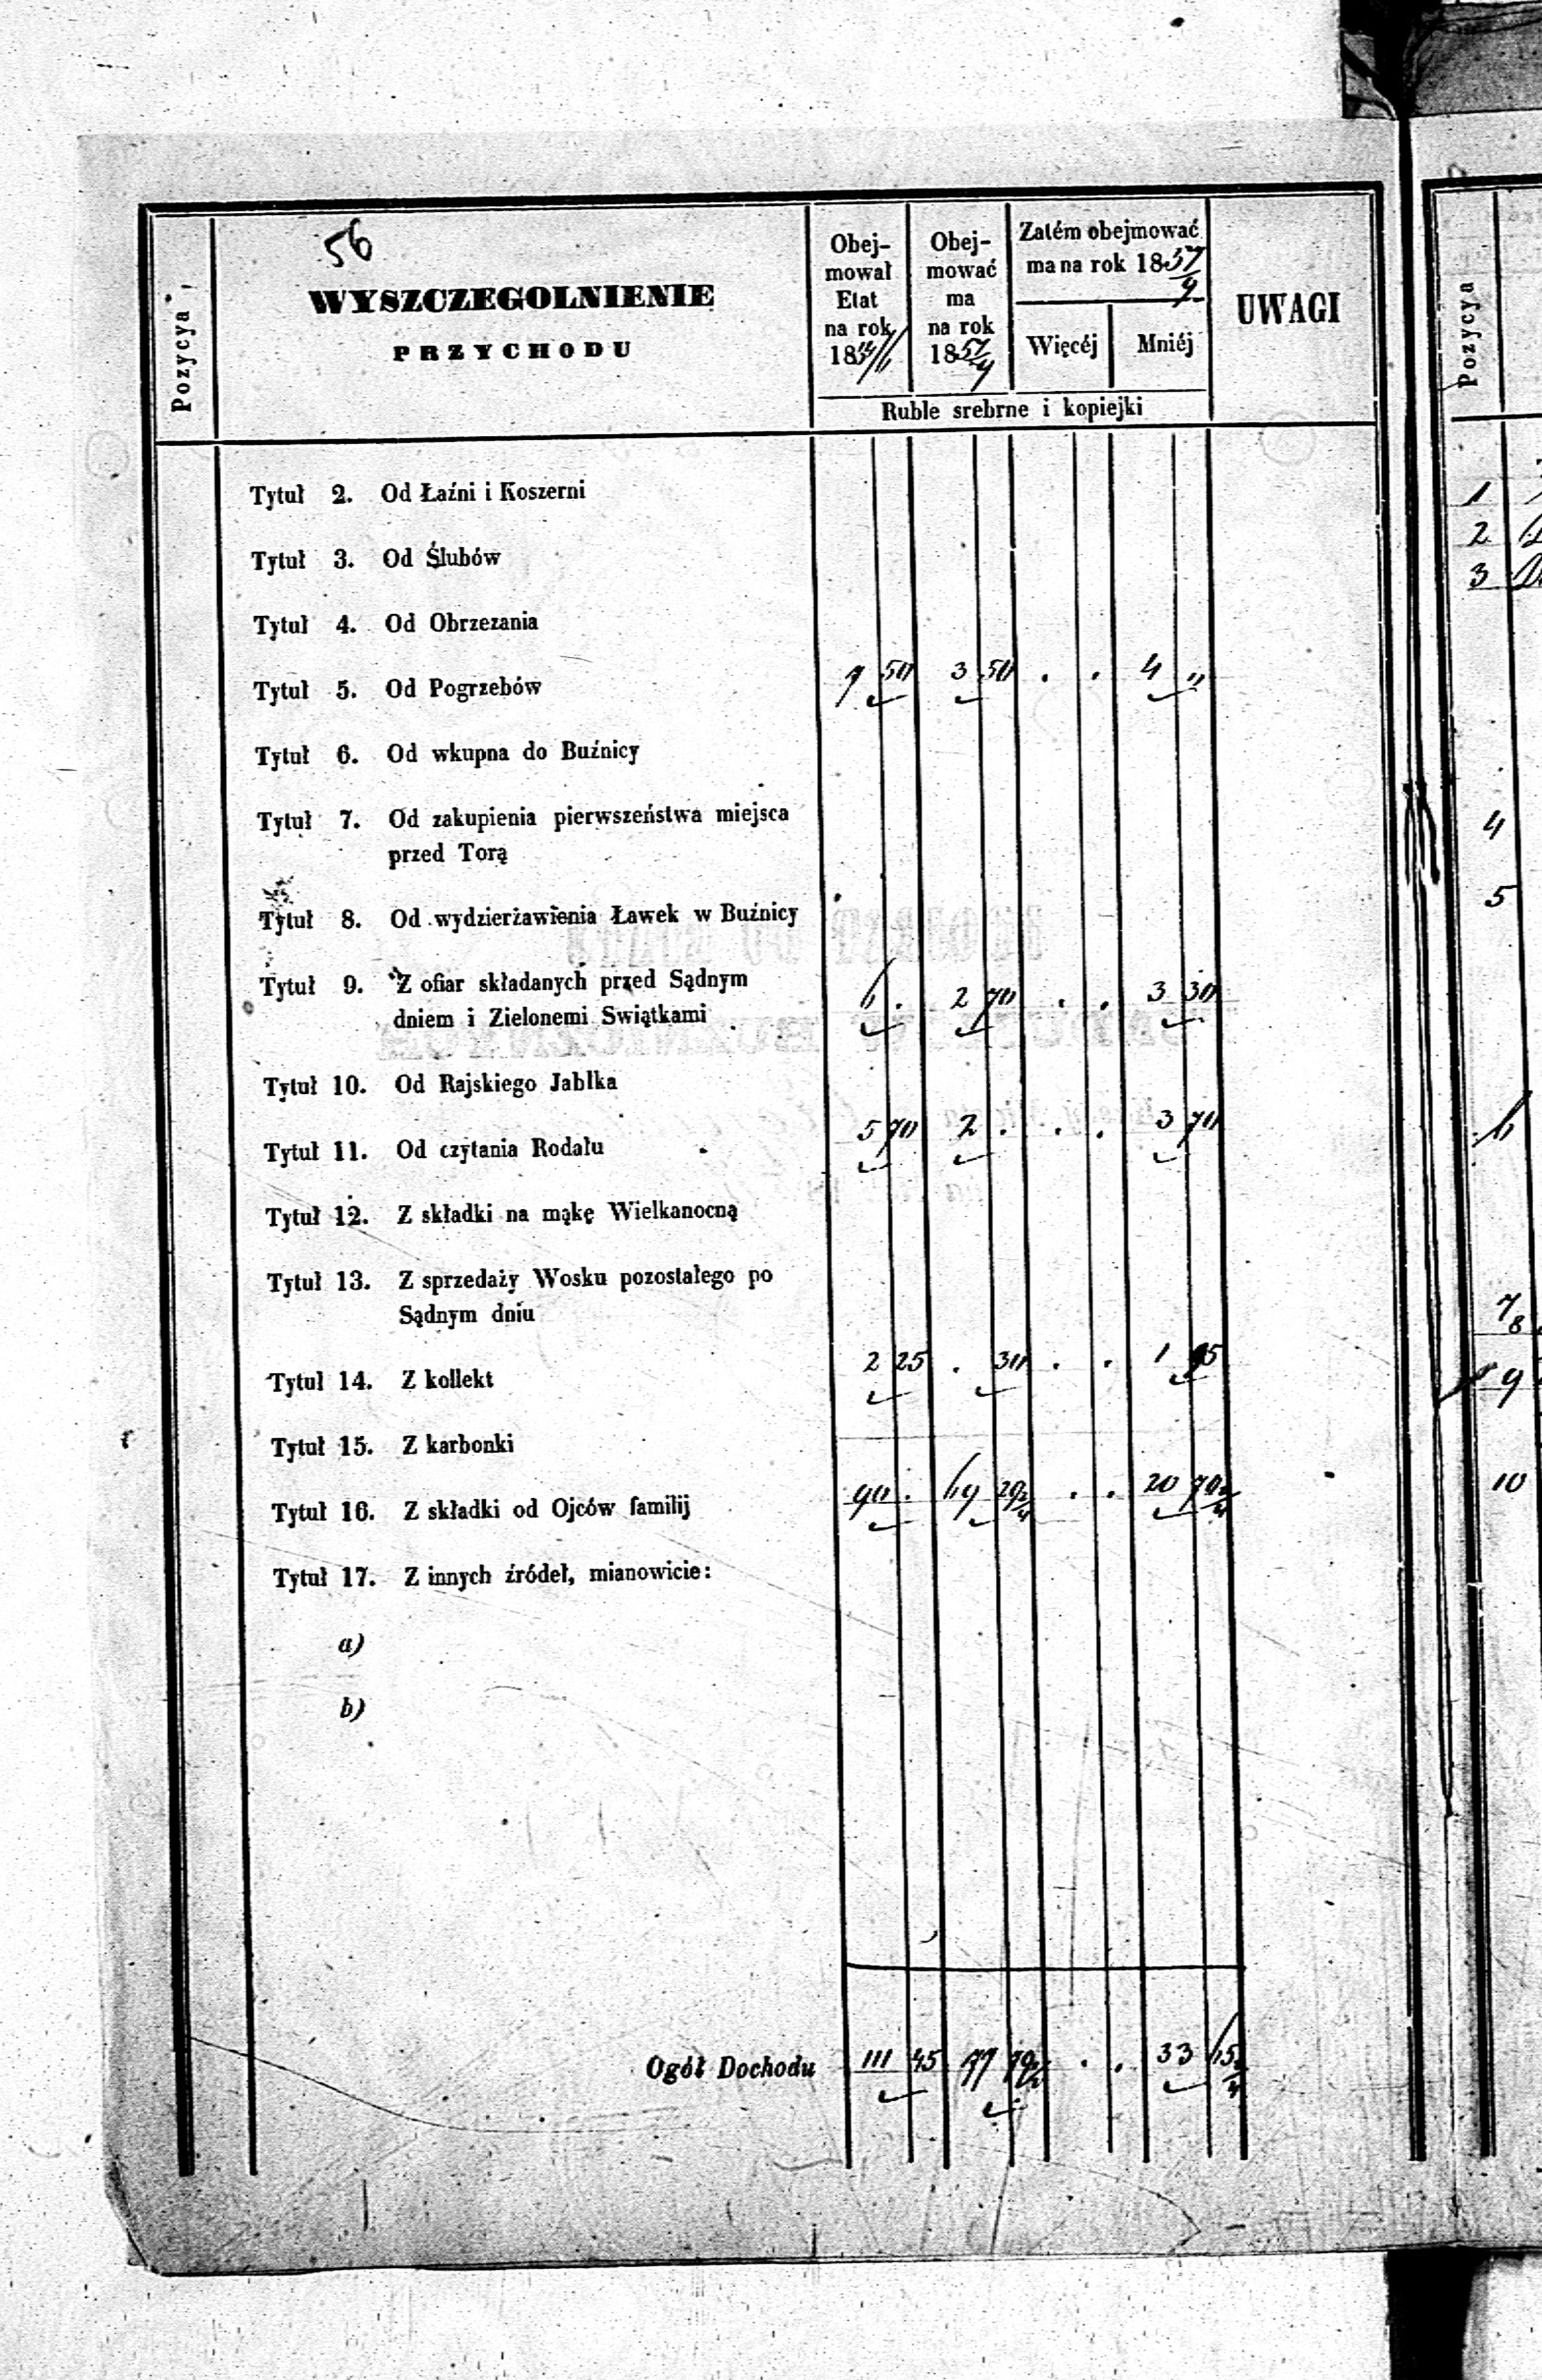 56
WYSZCZEGOLNIENIE
PRZYCHODU
Pozycya
Obej-
mował
Etat
na rok
18
Obej-
mować
ma
na rok
1857/9
Zatém obejmować
ma na rok 1857/9
Więcéj Mniéj
Ruble srebrne i kopiejki
UWAGI
Tytuł 2. Od Łaźni i Koszerni
Tytuł 3. Od Ślubów
Tytuł 4. Od Obrzezania
Tytuł 5. Od Pogrzebów 7 50 3 50 . . 4 "
Tytuł 6. Od wkupna do Buźnicy
Tytuł 7. Od zakupienia pierwszeństwa miejsca
przed Torą
Tytuł 8. Od wydzierżawienia Ławek w Buźnicy
Tytuł 9. Z ofiar składanych przed Sądnym
dniem i Zielonemi Swiątkami 6 . 2 70 . . 3 30
Tytuł 10. Od Rajskiego Jabłka
Tytuł 11. Od czytania Rodału 5 70 2 . . . 3 70
Tytuł 12. Z składki na mąkę Wielkanocną
Tytuł 13. Z sprzedaży Wosku pozostałego po
Sądnym dniu
Tytuł 14. Z kollekt 2 25 . 30 . . 1 95
Tytuł 15. Z karbonki
Tytuł 16. Z składki od Ojców familij 90 . 69 29 2/4 . . 20 70 2/4
Tytuł 17. Z innych źródeł, mianowicie:
a)
b)
Ogół Dochodu 111 45 77 79 2/4 . . 33 65 2/4
Pozycya
1
2
3
4
5
6
7/8
9
10